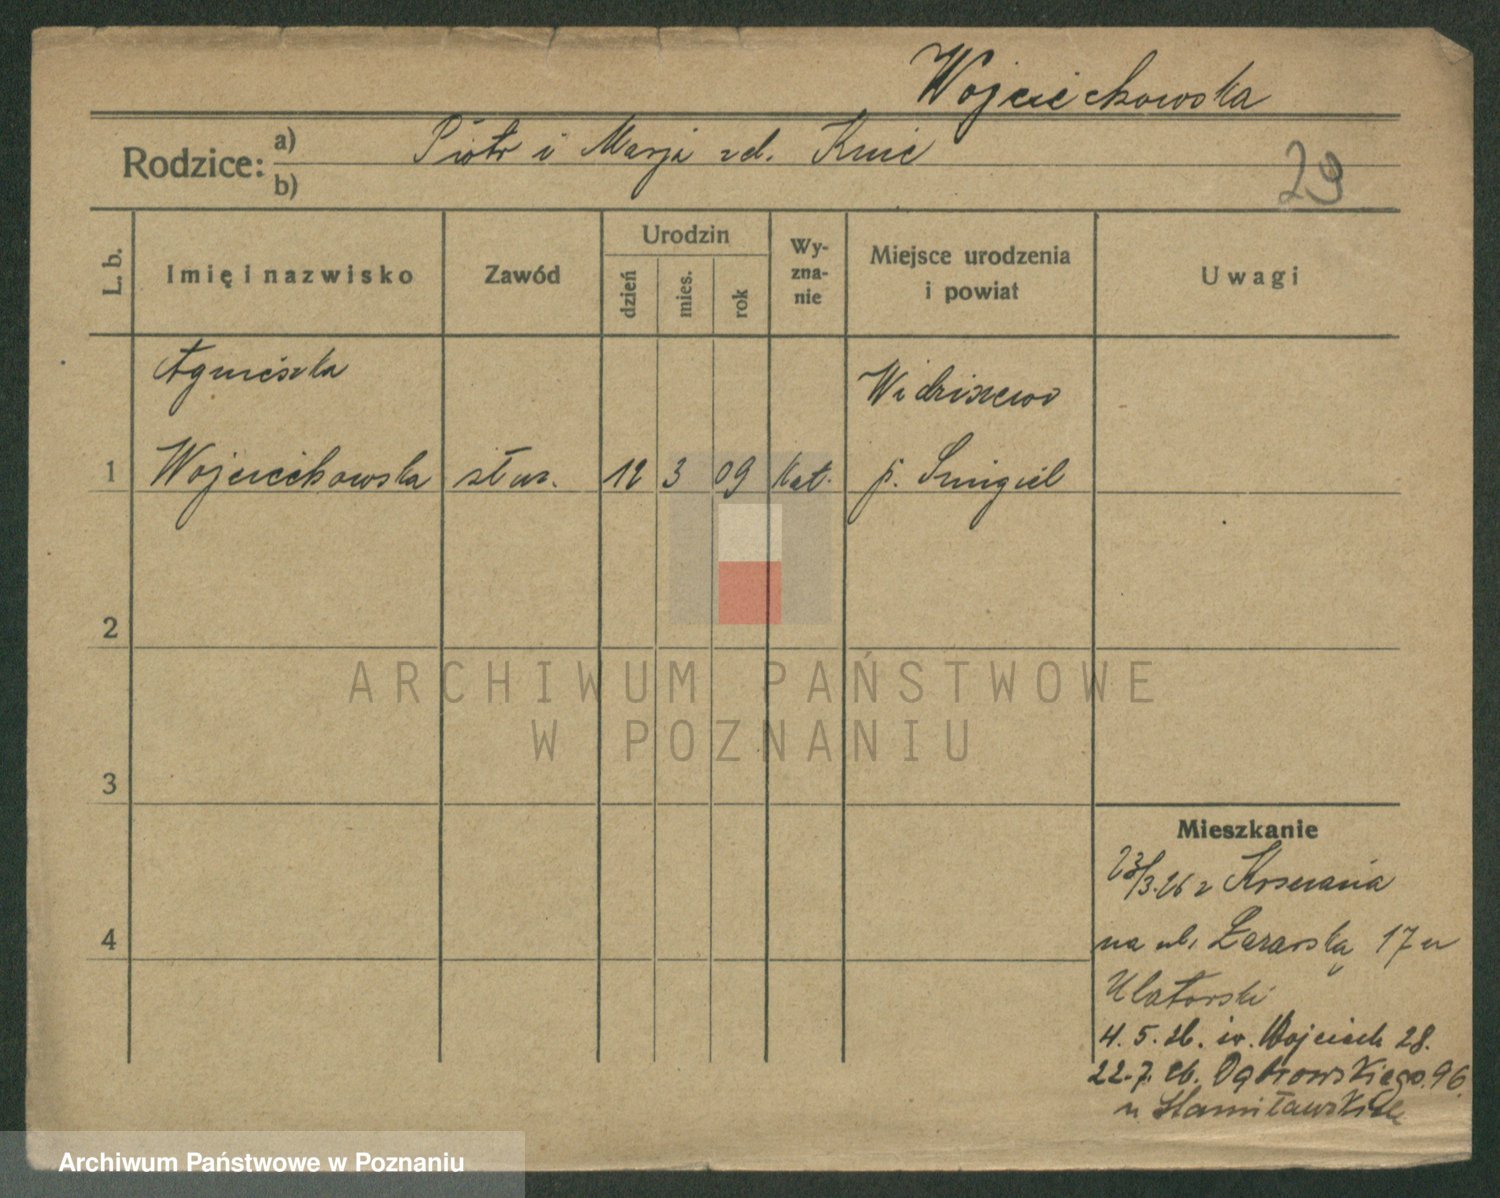 Wojciechowska
Rodzice: a) Piotr i Marja zd. Knic
b)
29
L. b.
Imię i nazwisko
Zawód
Urodzin
dzień
mies.
rok
Wy-
zna-
nie
Miejsce urodzenia
i powiat
Uwagi
Agnieszka
Widziszewo
1 Wojciechowska służ. 12 3 09 kat. p. Śmigiel
2
3
4
Mieszkanie
23/3.26 z
na ul. Łazarską 17 u
Ulatorski
4. 5. 26. św. Wojciech 28.
22.7. 26. Dąbrowskiego. 96.
u
ARCHIWUM PAŃSTWOWE
W POZNANIU
Archiwum Państwowe w Poznaniu